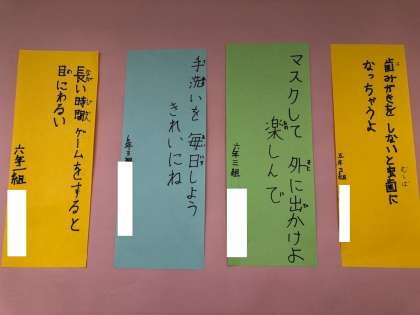 歯みがきをしないと虫歯に
なっちゃうよ
五年三組
マスクして 外に出かけよ
楽しんで
六年三組
手洗いを 毎日しよう
きれいにね
長い時間 ゲームをすると
目にわるい
六年一組